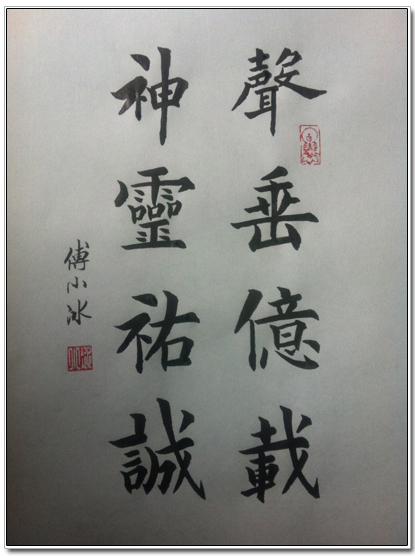 聲垂億載
神靈祐誠
傅小冰